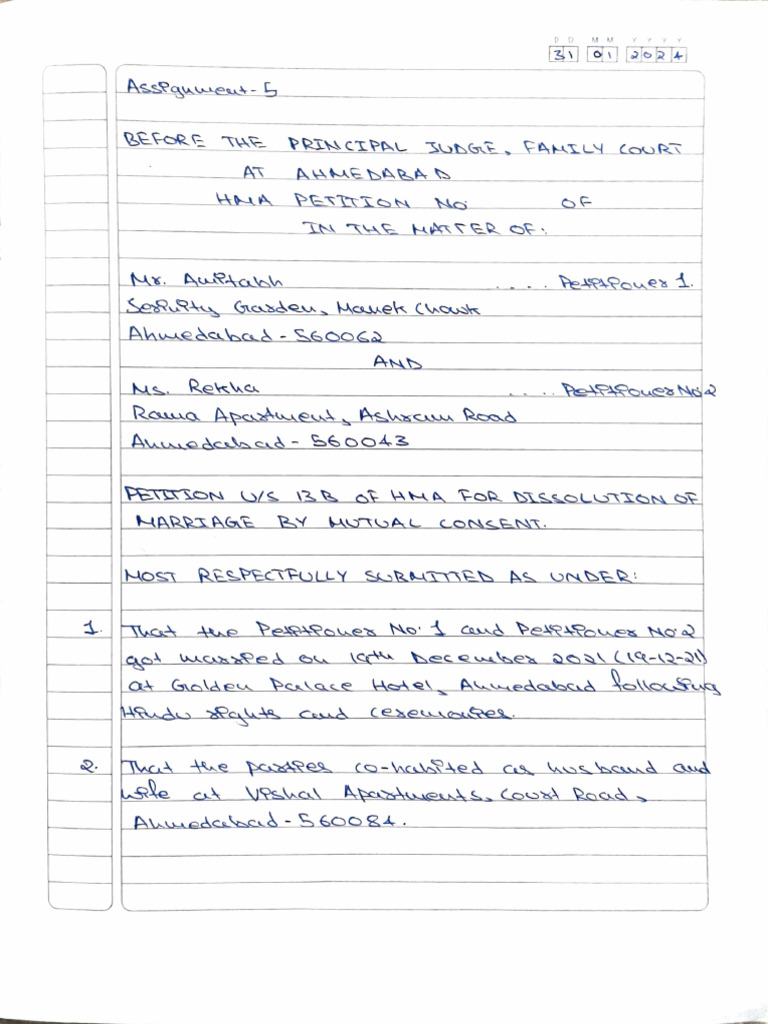 D D M M Y Y Y Y
31 01 2024
Assignment-5
BEFORE THE PRINCIPAL JUDGE, FAMILY COURT
AT AHMEDABAD
HMA PETITION NO. OF
IN THE MATTER OF:
Mr. Amitabh .... Petitioner 1.
Serinity Garden, Manek Chowk
Ahmedabad - 560062
AND
Ms. Rekha .... Petitioner No.2
Rama Apartment, Ashram Road
Ahmedabad - 560043
PETITION U/S 13B OF HMA FOR DISSOLUTION OF
MARRIAGE BY MUTUAL CONSENT.
MOST RESPECTFULLY SUBMITTED AS UNDER:
1. That the Petitioner No.1 and Petitioner No.2
got married on 19th December 2021 (19-12-21)
at Golden Palace Hotel, Ahmedabad following
Hindu rights and ceremonies.
2. That the parties co-habited as husband and
wife at Vishal Apartments, Court Road,
Ahmedabad - 560084.